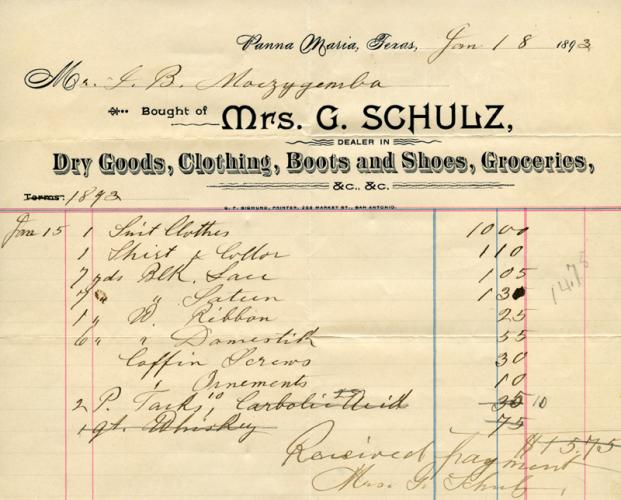 Panna Maria, Texas, Jan 18 1893
Mr. J. B. Moczygemba
Bought of Mrs. G. SCHULZ,
DEALER IN
Dry Goods, Clothing, Boots and Shoes, Groceries,
&c., &c.
Terms: 1893
G. F. SIGMUND, PRINTER, 205 MARKET ST., SAN ANTONIO.
Jan 15 1 Suit Clothes 10 00
1 Shirt & Collor 1 10
7 yds Blk. Lace 1 05
" " Sateen 1 35
1 " W. Ribbon 25
6 " " Domestik 55
Coffin Screws 30
" Ornements 10
2 P. Tacks 10, Carbolic Acid 35 10
1 qt. Whiskey 75
$15.75
14.75
Received payment
Mrs. G. Schulz